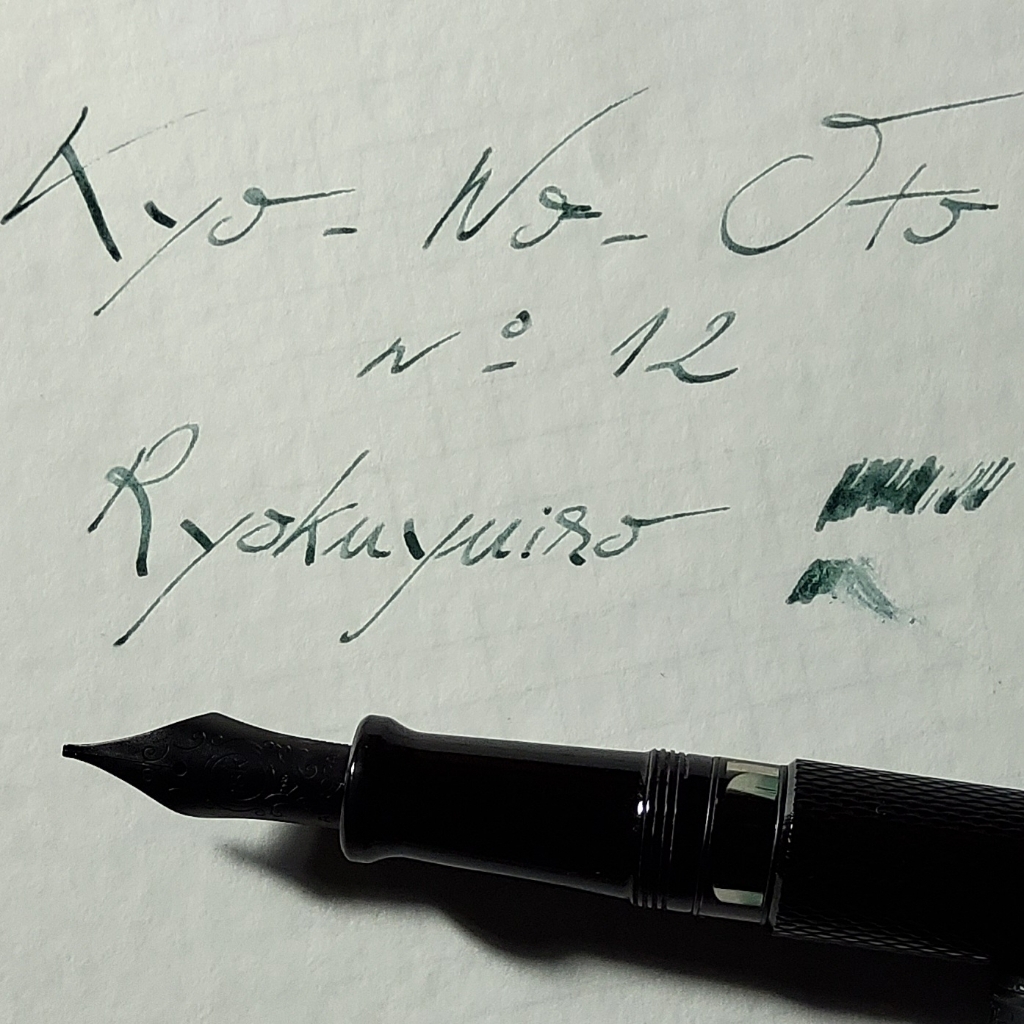 Kyo-No-Oto
Nº 12
Ryokuyuiro